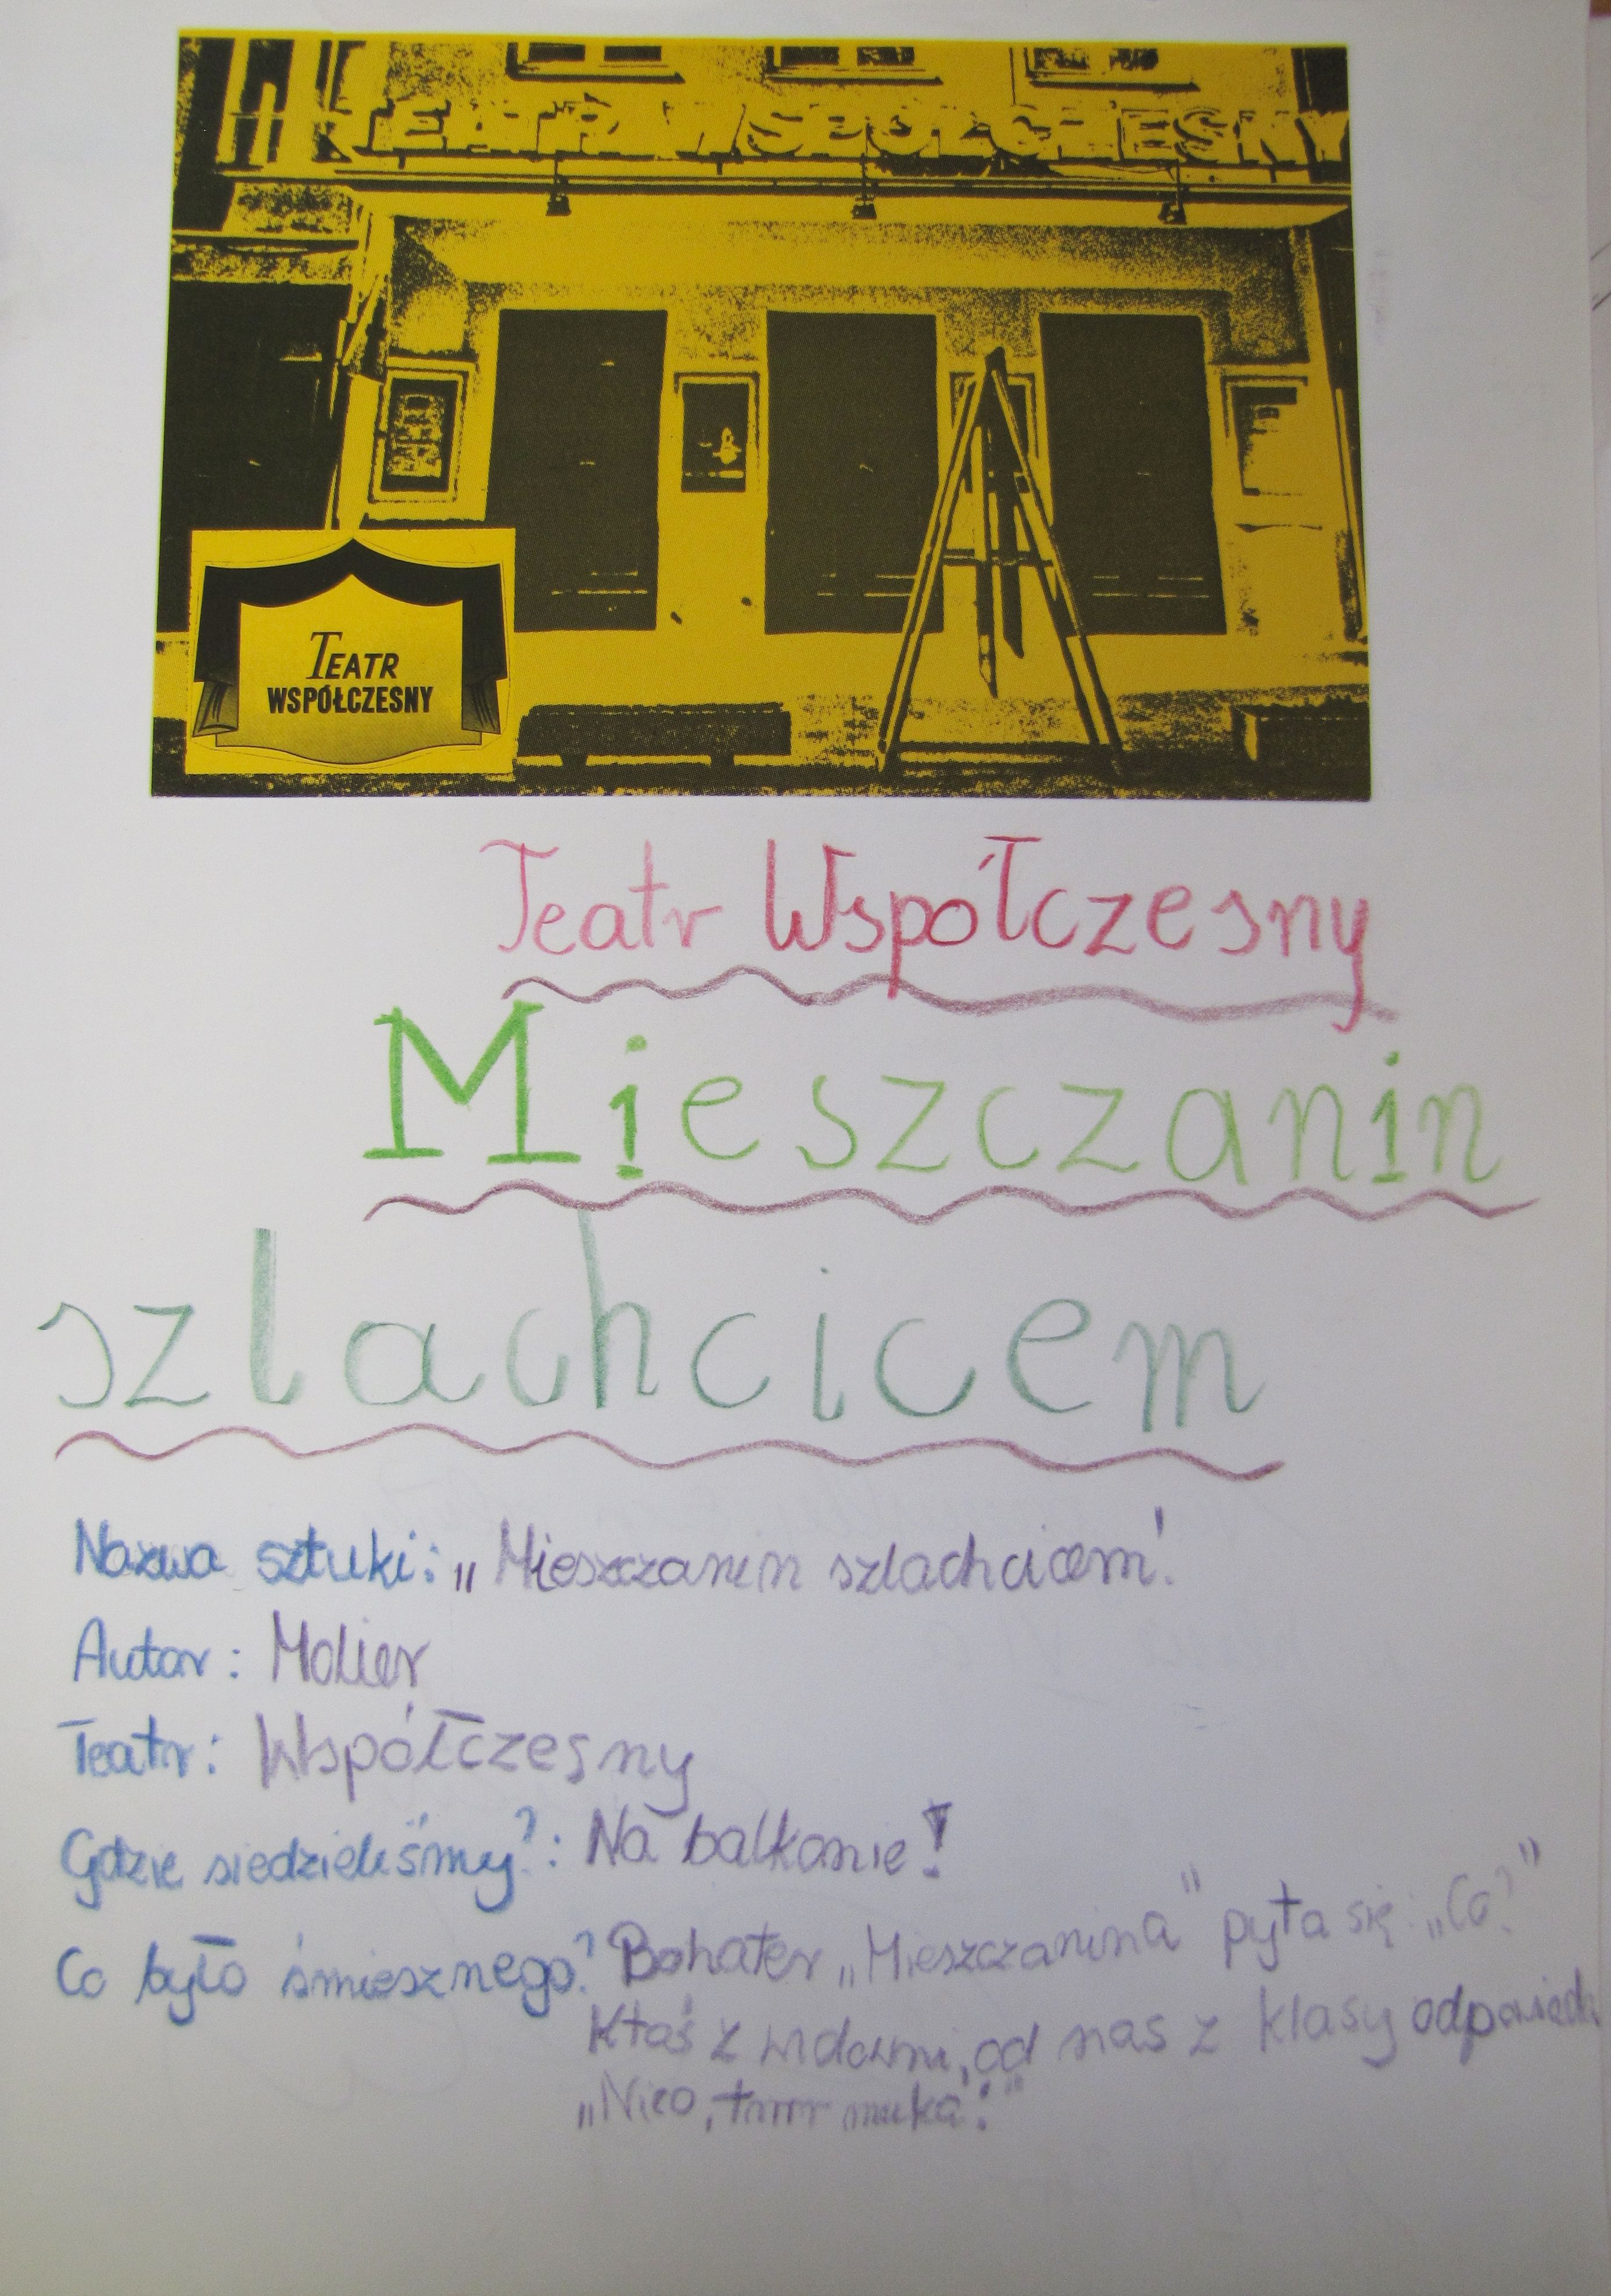 TEATR WSPÓŁCZESNY
TEATR
WSPÓŁCZESNY
Teatr Współczesny
Mieszczanin
szlachcicem
Nazwa sztuki: „Mieszczanin szlachcicem".
Autor: Molier
Teatr: Współczesny
Gdzie siedzieliśmy?: Na balkonie!
Co było śmiesznego? Bohater „Mieszczanina" pyta się: „Co?"
Ktoś z widowni, od nas z klasy odpowiada
„Nico,